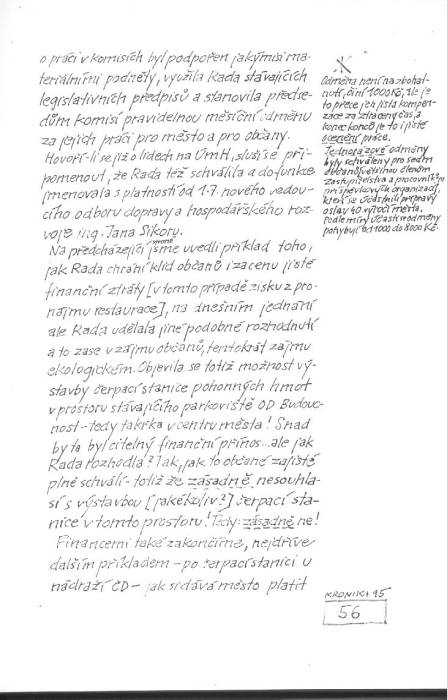 o práci v komisích byl podpořen jakýmisi ma-
teriálními podněty, využila Rada stávajících
legislativních předpisů a stanovila předse-
dům komisí pravidelnou měsíční odměnu
za jejich práci pro město a pro občany.
Hovoří-li se již o lidech na ÚmH, sluší se při-
pomenout, že Rada též schválila a do funkce
jmenovala s platností od 1.7. nového vedou-
cího odboru dopravy a hospodářského roz-
voje ing. Jana Sikory.
Na předcházející jsme straně uvedli příklad toho,
jak Rada chrání klid občanů i za cenu jisté
finanční ztráty [v tomto případě zisku z pro-
nájmu restaurace], na dnešním jednání
ale Rada udělala jiné podobné rozhodnutí
a to zase v zájmu občanů, tentokrát zájmu
ekologickém. Objevila se totiž možnost vý-
stavby čerpací stanice pohonných hmot
v prostoru stávajícího parkoviště OD Budouc-
nost - tedy takřka v centru města! Snad
by to byl citelný finanční přínos... ale jak
Rada rozhodla? Tak, jak to občané zajisté
plně schválí - totiž že zásadně nesouhla-
sí s výstavbou [jakékoliv?] čerpací sta-
nice v tomto prostoru! Tedy: zásadně ne!
Financemi také zakončíme, nejdříve
dalším příkladem - po čerpací stanici u
nádraží ČD - jak se dává město platit
Odměna není na zbohat-
nutí, činí 1000 Kč, ale je
to přece jen jistá kompen-
zace za ztracený čas, a
konec konců je to i jisté
ocenění práce.
Jednorázové odměny
byly schváleny pro sedm
občanů většinou členům
zastupitelstva a pracovníkům
příspěvkových organizací,
kteří se účastnili přípravy
oslav 40. výročí města.
Podle míry účasti se odměny
pohybují od 1000 do 8000 Kč.
KRONIKA 95
56